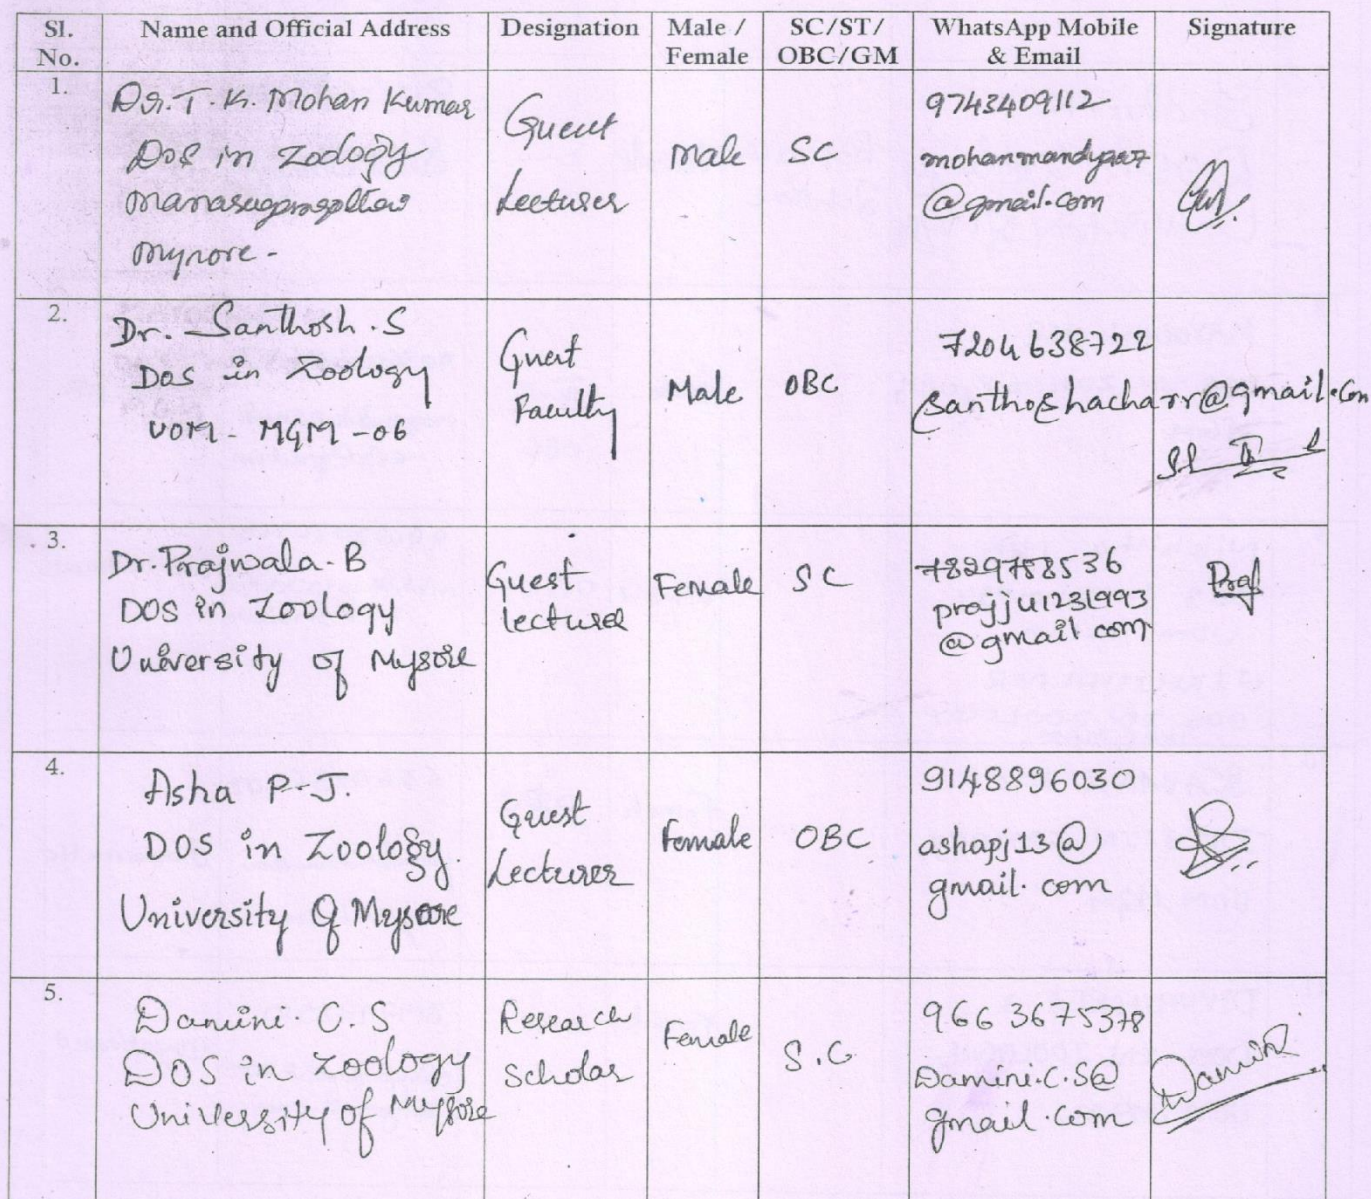 Sl. No.
Name and Official Address
Designation
Male / Female
SC/ST/ OBC/GM
WhatsApp Mobile & Email
Signature
1.
Dr. T. K. Mohan Kumar
DOS in Zoology
Mysore -
Guest
Lecturer
Male
SC
9743409112
@gmail.com
2.
Dr. Santhosh . S
Dos in Zoology
UOM - MGM - 06
Guest
Faculty
Male
OBC
7204638722
santhoshacharr@gmail.com
3.
Dr. Prajwala . B
DOS in Zoology
University of Mysore
Guest
lecturer
Female
SC
7829758536
prajju1231993
@gmail com
4.
Asha P-J.
DOS in Zoology
University of Mysore
Guest
Lecturer
Female
OBC
9148896030
ashapj13@
gmail. com
5.
Damini. C. S
DOS in Zoology
University of Mysore
Research
Scholar
Female
S.C
9663675378
Damini.C.S@
gmail.com
Damini